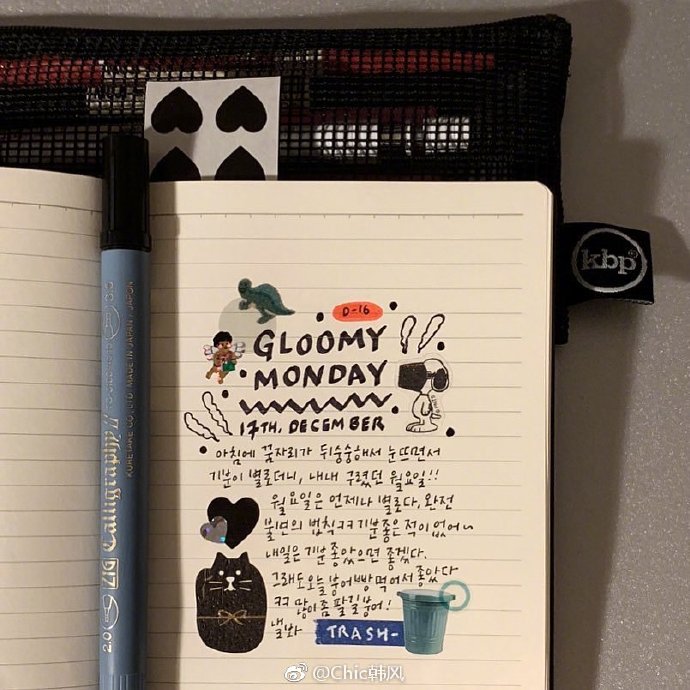 kbp
D-16
GLOOMY
MONDAY
17TH, DECEMBER
아침에 꿈자리가 뒤숭숭해서 눈뜨면서
기분이 별로더니, 내내 구렸던 월요일!!
월요일은 언제나 별로다, 완전
불변의 법칙ㅋㅋ 기분좋은적이 없어~
내일은 기분좋았으면 좋겠다.
그래도 오늘 붕어빵 먹어서 좋았다
ㅋㅋ 많이좀 팔길 붕어!
낼봐
TRASH-
2.0 ZIG Calligraphy II
KURETAKE CO., LTD. MADE IN JAPAN / JAPON
@Chic韩风